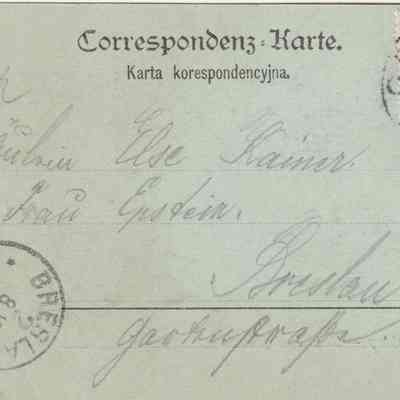 Correspondenz-Karte.
Karta korespondencyjna.
Else Kainer.
Frau Epstein.
Breslau
Gartenstraße.
BRESLA